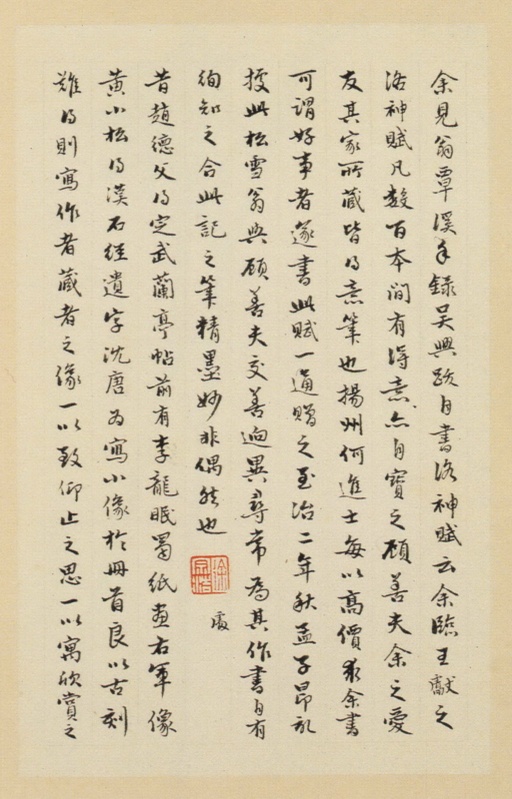 余見翁覃溪手錄吳興跋自書洛神賦云余臨王獻之
洛神賦凡數百本間有得意亦自寶之顧善夫余之愛
友其家所藏皆得意筆也揚州何進士每以高價求余書
可謂好事者遂書此賦一通贈之至治二年秋孟子昂記
據此松雪翁與顧善夫交善迥異尋常為其作書自有
絢知之合此記之筆精墨妙非偶然也
昔趙德父得定武蘭亭帖前有李龍眠蜀紙畫右軍像
黃小松得漢石經遺字沈唐為寫小像於冊首良以古刻
難得則寫作者藏者之像一以致仰止之思一以寓欣賞之